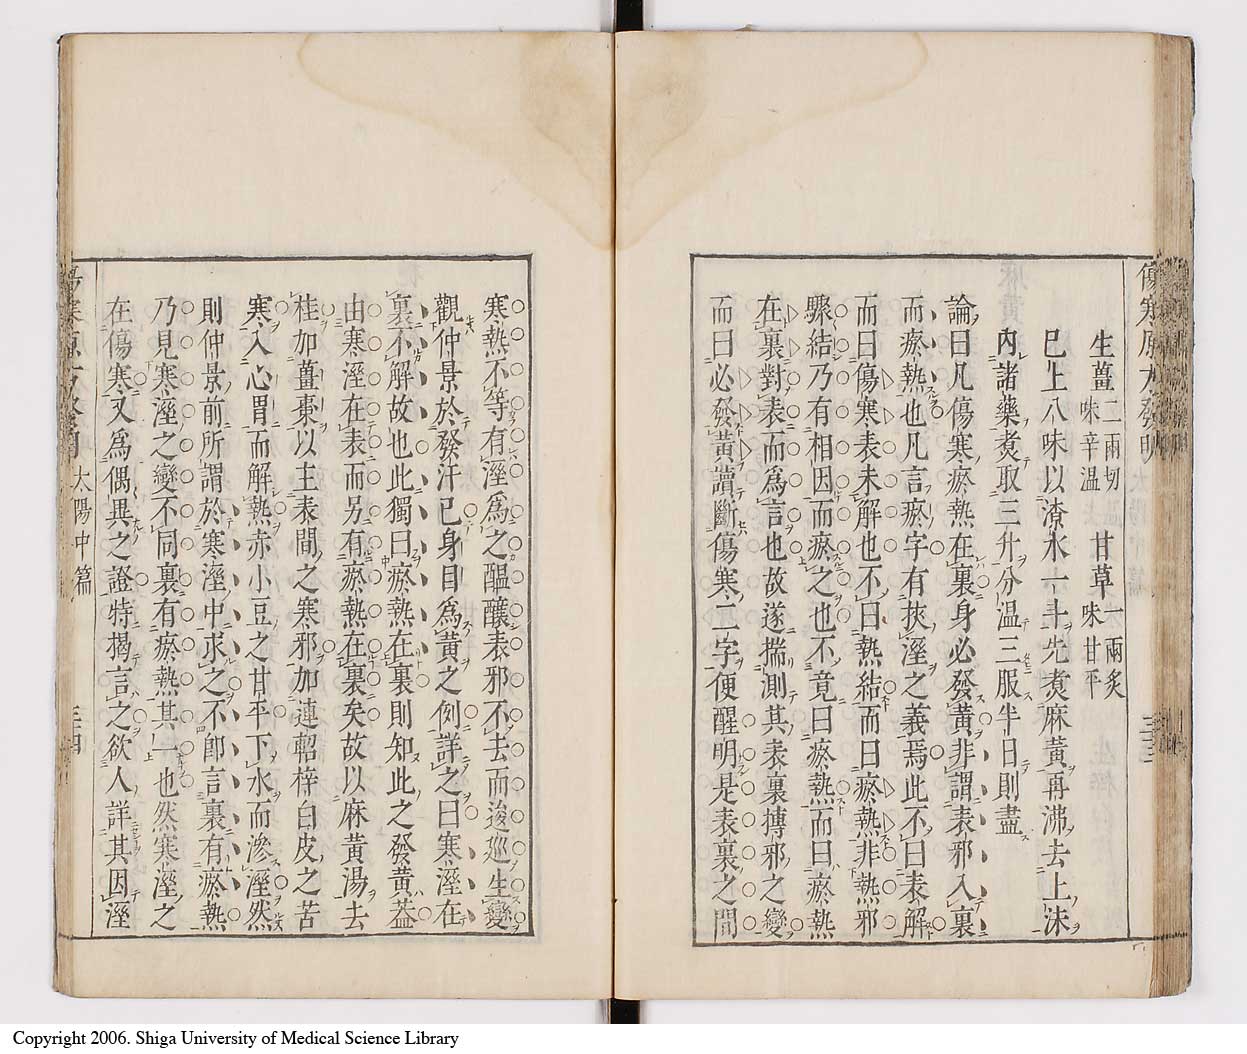 生薑二兩切味辛溫 甘草一兩炙味甘平
已上八味以潦水一斗先煑麻黃再沸去上沫
內諸藥煑取三升分溫三服半日則盡
論曰凡傷寒瘀熱在裏身必發黃非謂表邪入裏
而瘀熱也凡言瘀字有挾溼之義焉此不曰表解
而曰傷寒表未解也不曰熱結而曰瘀熱非熱邪
驟結乃有相因而瘀之也不竟曰瘀熱而曰瘀熱
在裏對表而爲言也故遂揣測其表裏摶邪之變
而曰必發黃讀斷傷寒二字便醒明是表裏之間
寒熱不等有溼爲之醞釀表邪不去而逡廵生變
觀仲景於發汗已身目爲黃之例詳之曰寒溼在
裏不解故也此獨曰瘀熱在裏則知此之發黃葢
由寒溼在表而另有瘀熱在裏矣故以麻黃湯去
桂加薑棗以主表間之寒邪加連軺梓白皮之苦
寒入心胃而解熱赤小豆之甘平下水而滲溼然
則仲景前所謂於寒溼中求之不卽言裏有瘀熱
乃見寒溼之變不同裏有瘀熱其一也然寒溼之
在傷寒又爲偶異之證特揭言之欲人詳其因溼
太陽中篇
Copyright 2006. Shiga University of Medical Science Library